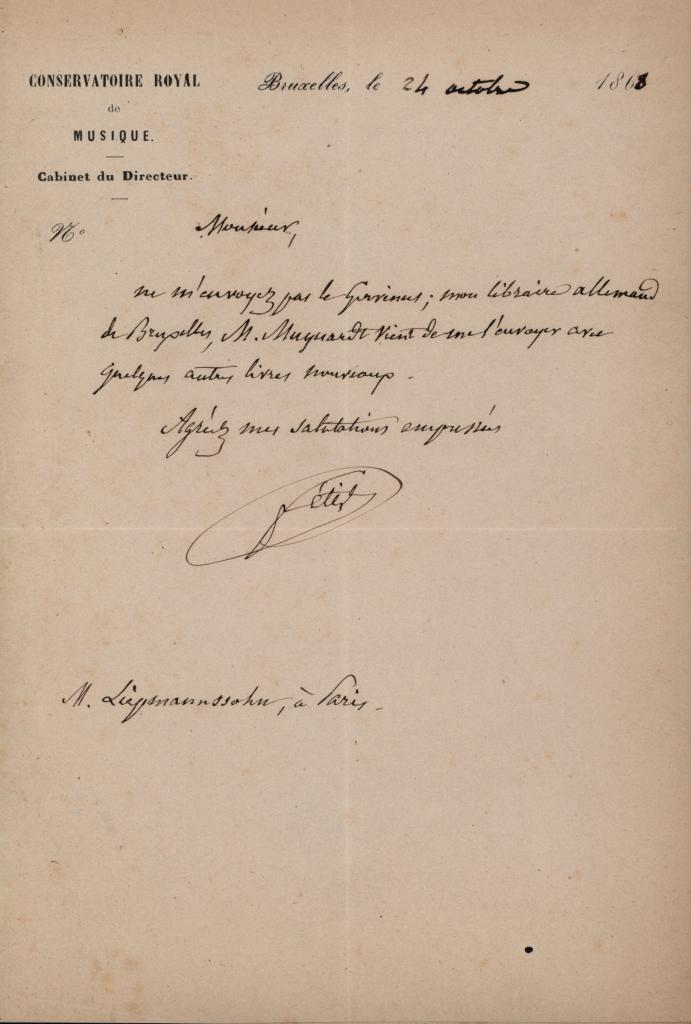 CONSERVATOIRE ROYAL
de
MUSIQUE.
Cabinet du Directeur.
Bruxelles, le 24 octobre 1868
No
Monsieur,
ne m'envoyez pas le Gervinus; mon libraire allemand
de Bruxelles, M. Muquardt vient de me l'envoyer avec
quelques autres livres nouveaux.
Agréez mes salutations empressées
Fétis
M. Liepmannssohn, à Paris.